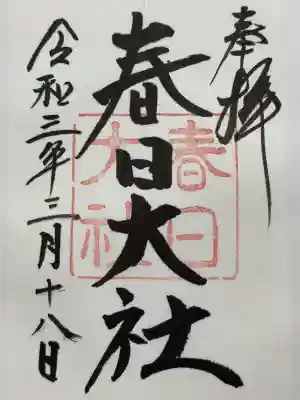 奉拝
春日大社
春日
大社
令和三年三月十八日